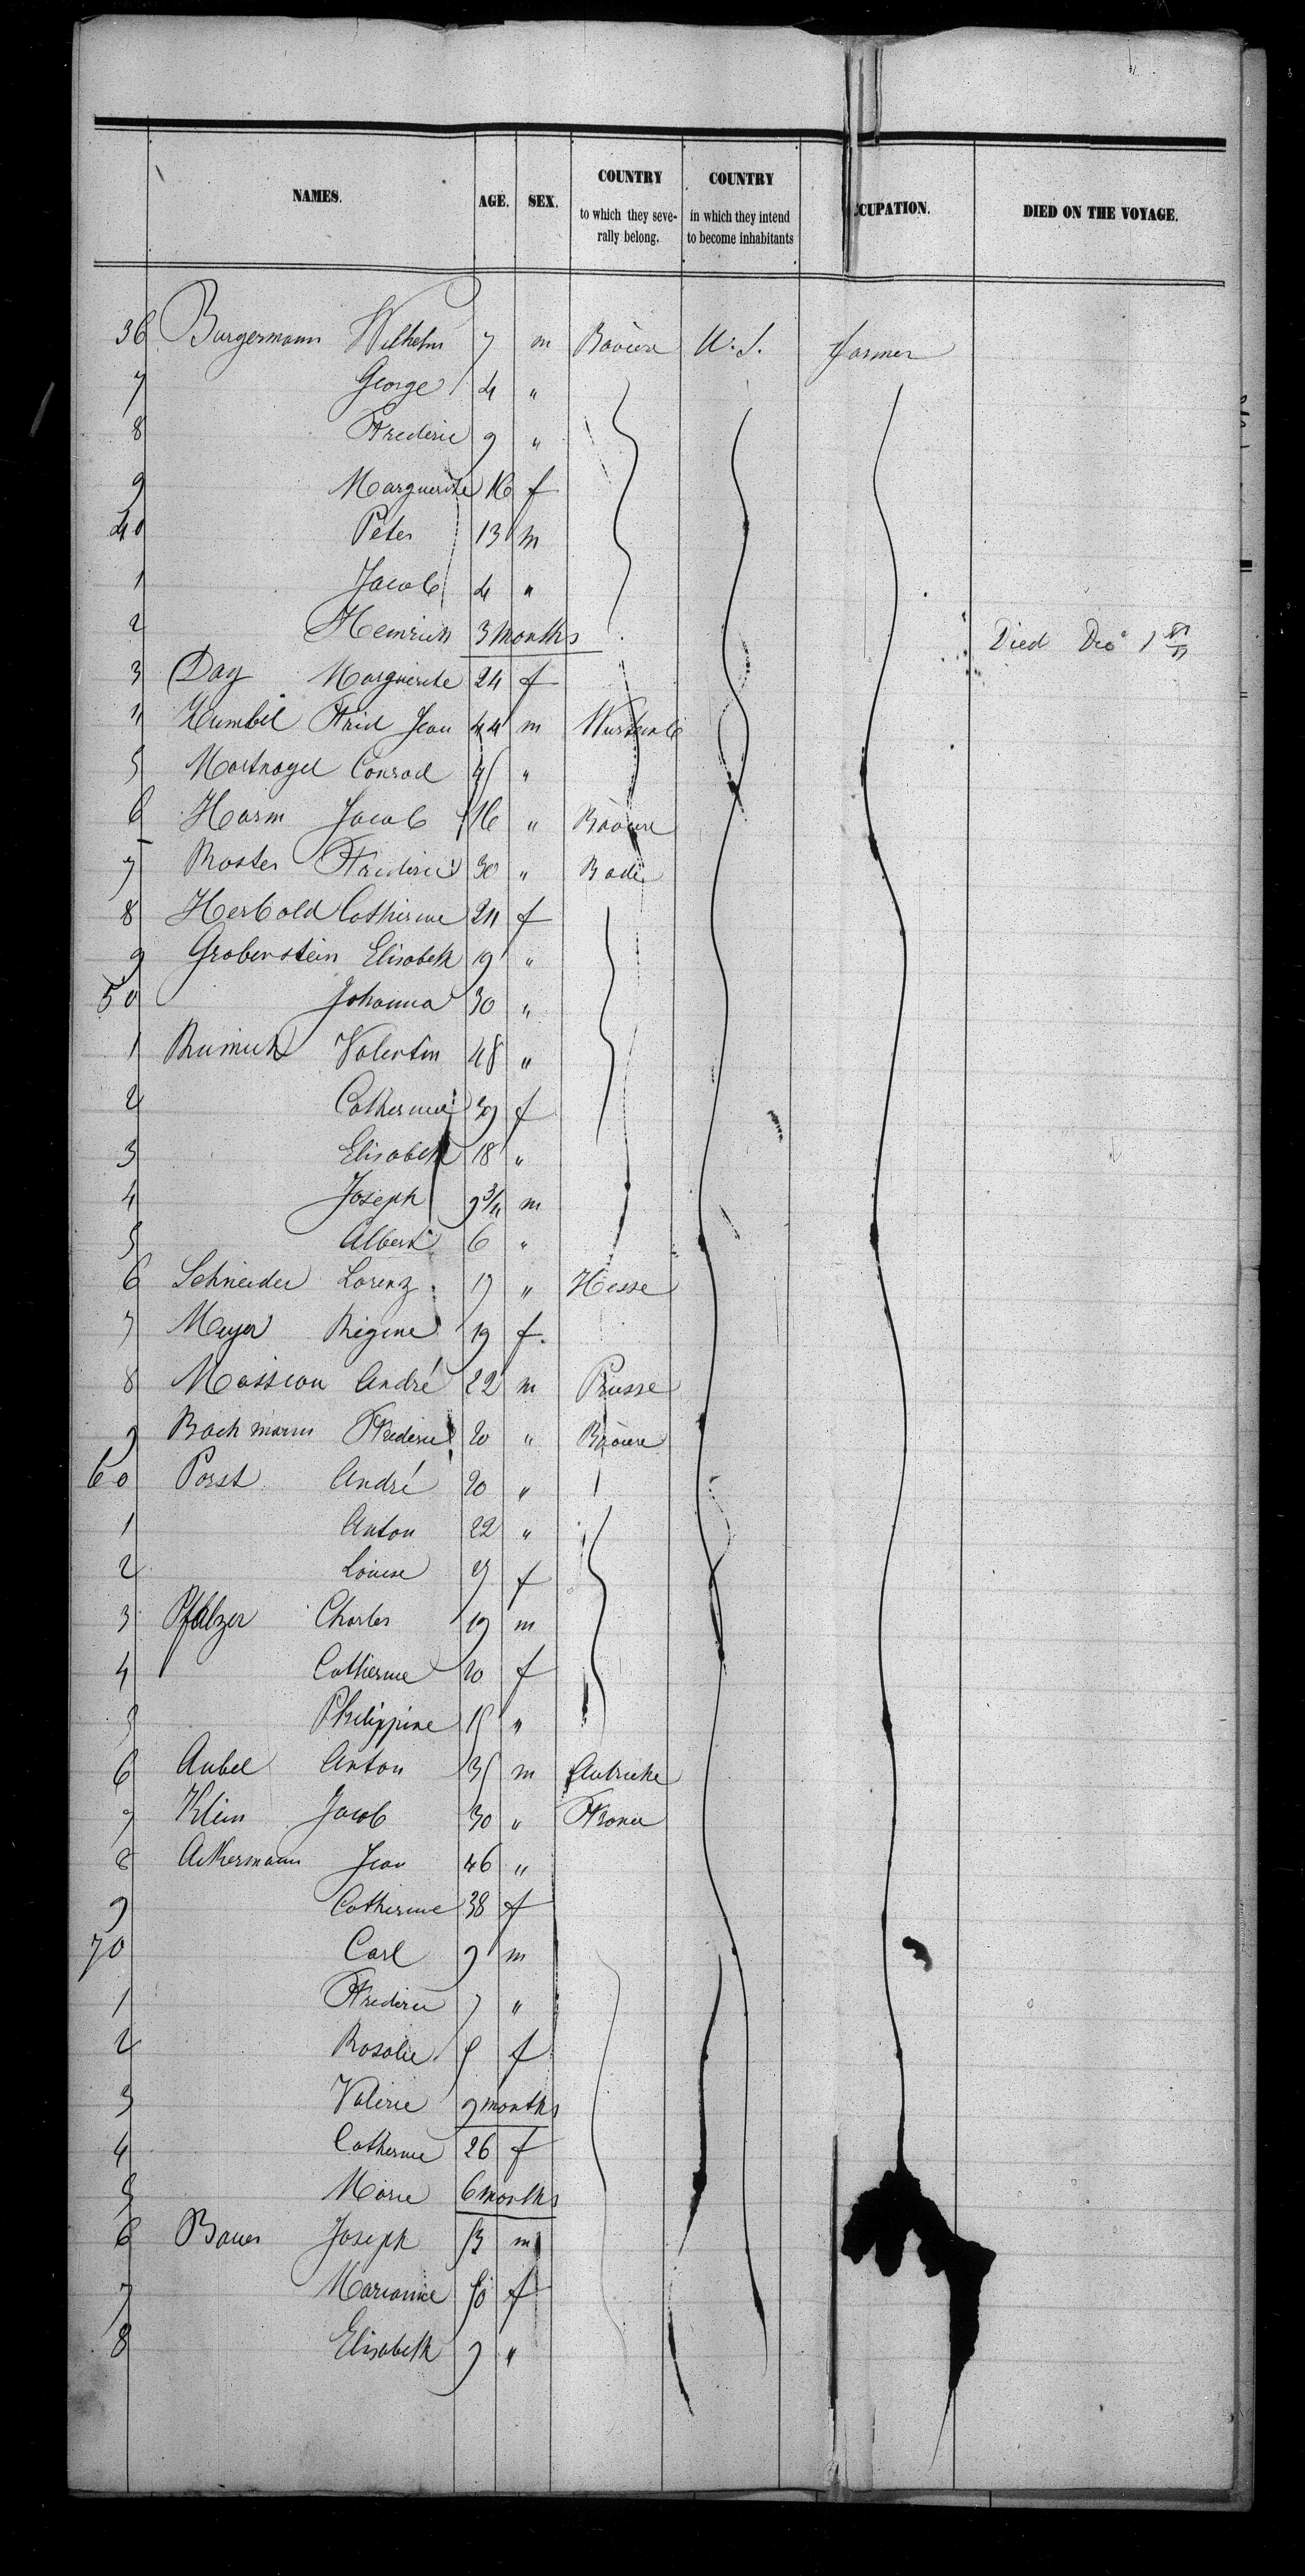 NAMES. AGE. SEX. COUNTRY to which they severally belong. COUNTRY in which they intend to become inhabitants CUPATION. DIED ON THE VOYAGE.
36 Burgermann Wilhelm 7 m Bavière U.S. farmer
7 George 4 "
8 Frederic 9 "
9 Marguerite 16 f
40 Peter 13 m
1 Jacob 4 "
2 Heinrich 3 months Died Dec 1st
3 Day Marguerite 24 f
4 Humbel Fried Jean 44 m Wurtemb
5 Mastnagel Conrad 45 "
6 Harm Jacob 16 " Bavière
7 Roster Frederic 30 " Bade
8 Herbold Catherine 24 f
9 Grobenstein Elisabeth 19 "
50 Johanna 30 "
1 Valentin 48 "
2 Catherine 39 f
3 Elisabeth 18 "
4 Joseph 9 3/4 m
5 Albert 6 "
6 Schneider Lorenz 19 " Hesse
7 Meyer Regine 19 f.
8 Massion André 22 m Prusse
9 Bachmann Frederic 20 " Bavière
60 Porst André 20 "
1 Anton 22 "
2 Louise f
3 Pfalzer Charles 19 m
4 Catherine 20 f
5 Philippine 15 "
6 Aubel Anton 35 m Autriche
7 Klein Jacob 30 " France
8 Ackermann Jean 46 "
9 Catherine 38 f
70 Carl 9 m
1 Frederic 7 "
2 Rosalie 5 f
3 Valerie 9 months
4 Catherine 26 f
5 Marie 6 months
6 Bauer Joseph 53 m
7 Marianne 50 f
8 Elisabeth 9 "